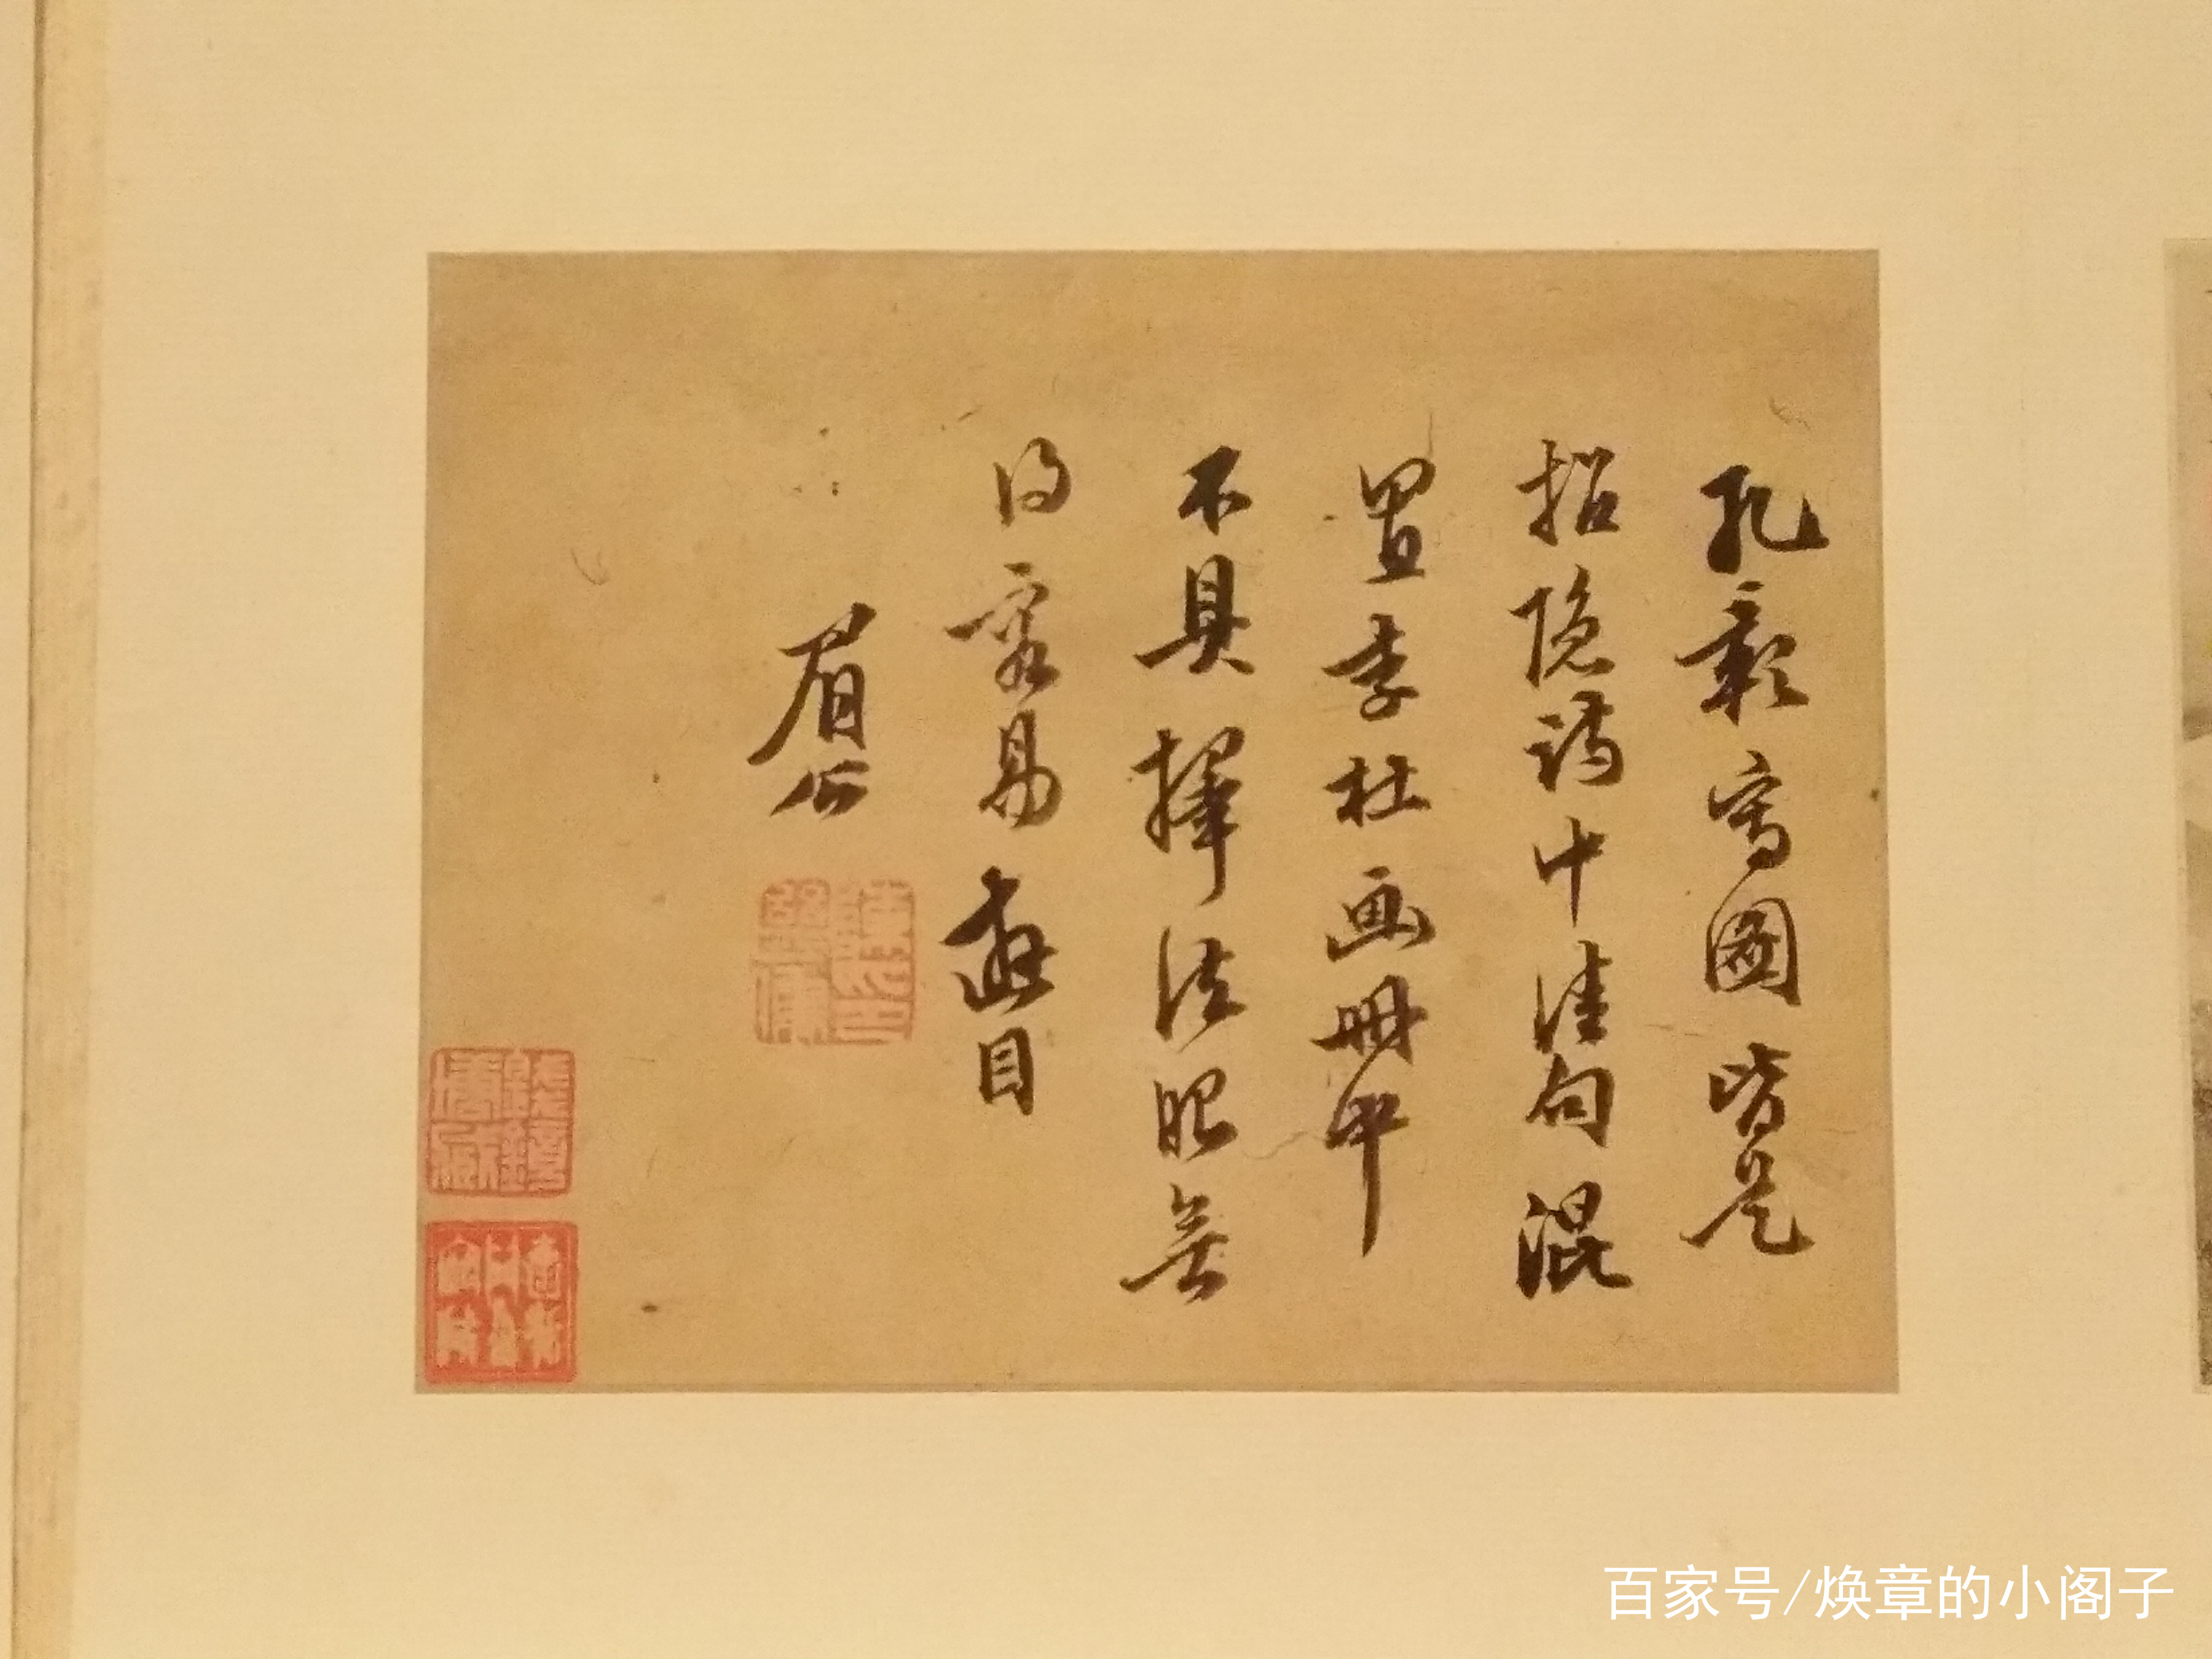 孔彰寫圖皆是
招隐詩中佳句混
置李杜画册中
不具擇法眼無
得容易遊目
眉公
百家号/焕章的小阁子